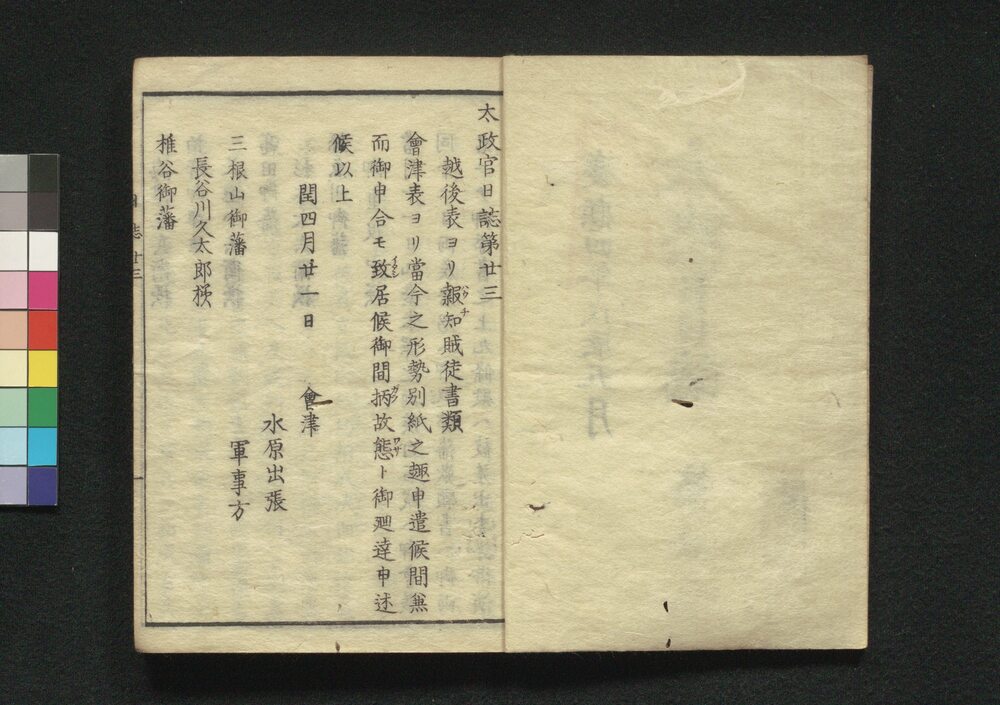 太政官日誌第廿三
越後表ヨリ報知賊徒書類
會津表ヨリ當今之形勢別紙之趣申遣候間兼
而御申合モ致居候御間柄故態ト御廻達申述
候以上
閏四月廿一日
會津
水原出張
軍事方
三根山御藩
長谷川久太郎様
椎谷御藩